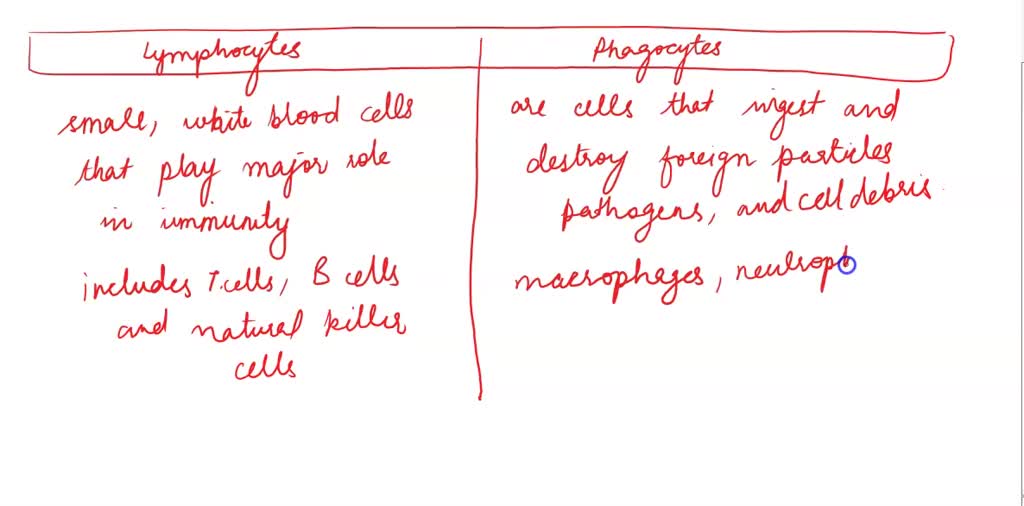 Lymphocytes
small, white blood cells
that play major role
in immunity
includes T.cells, B cells
and natural killer
cells
Phagocytes
are cells that ingest and
destroy foreign particles
pathogens, and cell debris.
macrophages, neutroph